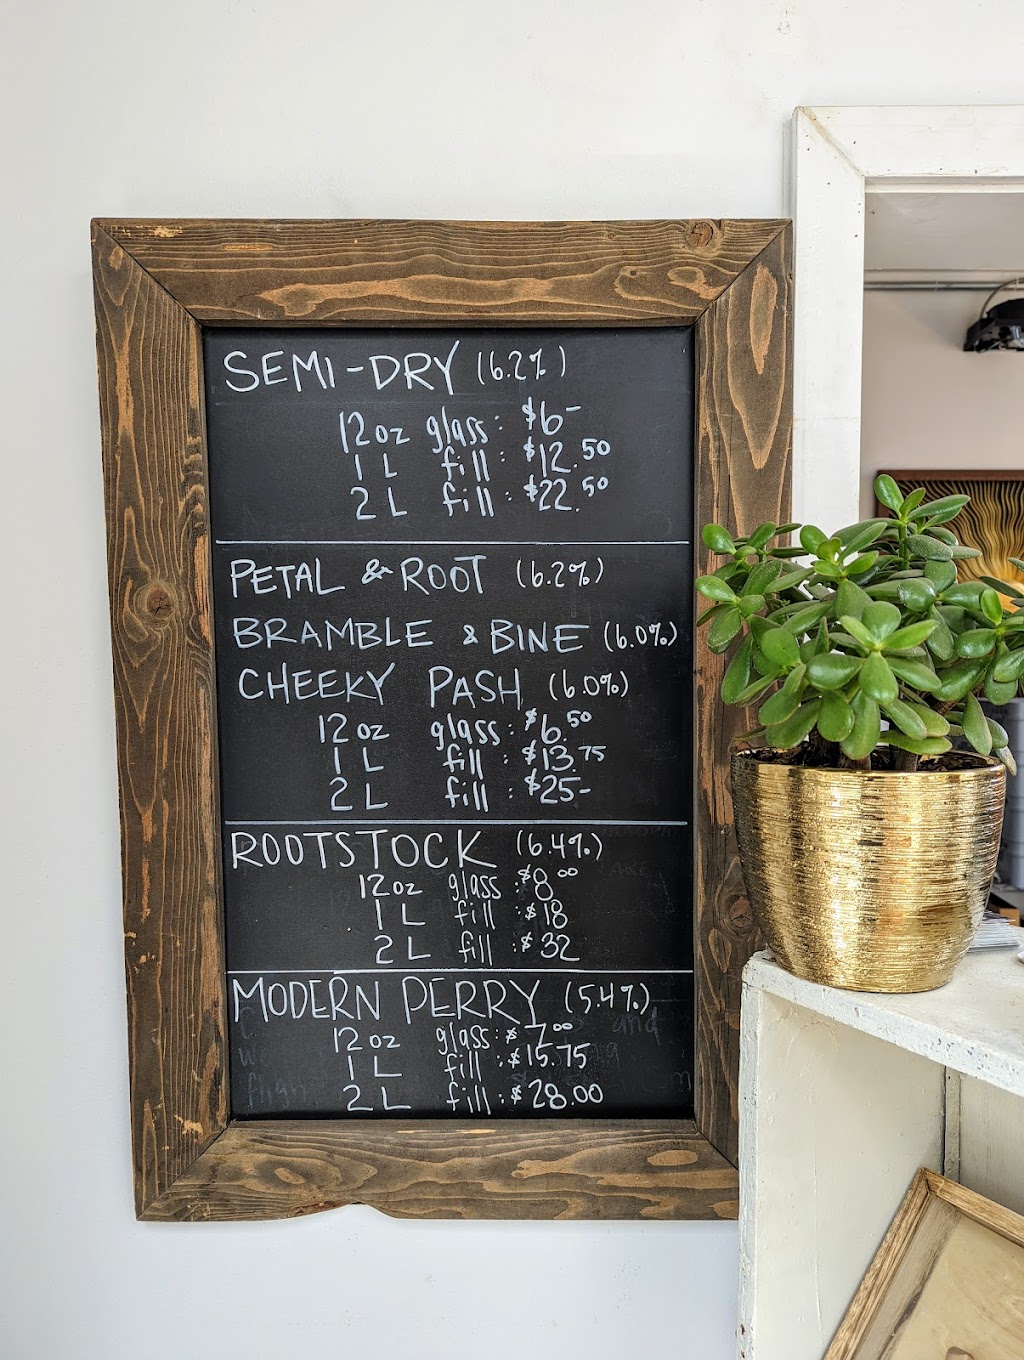 SEMI-DRY (6.2%)
12 oz glass: $6-
1 L fill: $12.50
2 L fill: $22.50
PETAL & ROOT (6.2%)
BRAMBLE & BINE (6.0%)
CHEEKY PASH (6.0%)
12 oz glass: $6.50
1 L fill: $13.75
2 L fill: $25-
ROOTSTOCK (6.4%)
12 oz glass: $8.00
1 L fill: $18
2 L fill: $32
MODERN PERRY (5.4%)
12 oz glass: $7.00
1 L fill: $15.75
2 L fill: $28.00